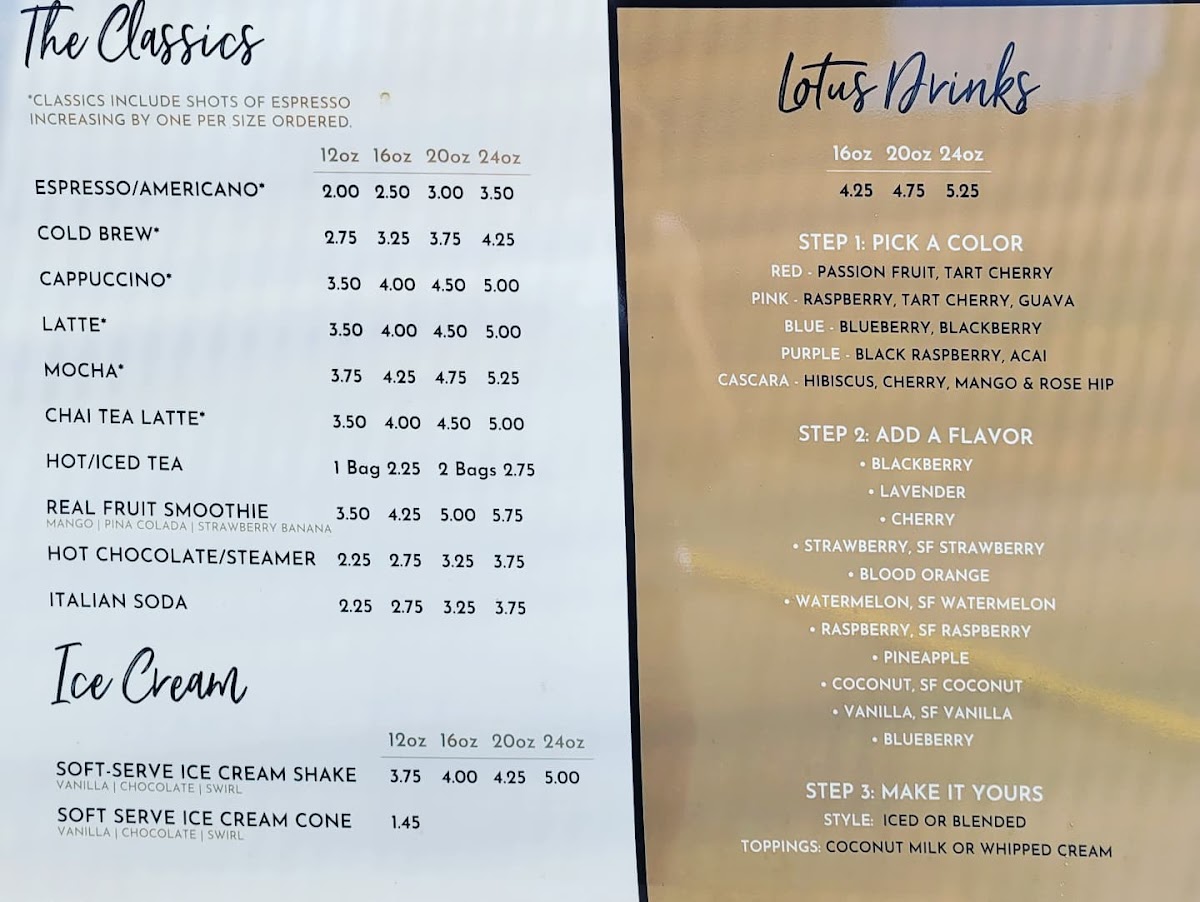 The Classics
*CLASSICS INCLUDE SHOTS OF ESPRESSO
INCREASING BY ONE PER SIZE ORDERED.
12oz 16oz 20oz 24oz
ESPRESSO/AMERICANO* 2.00 2.50 3.00 3.50
COLD BREW* 2.75 3.25 3.75 4.25
CAPPUCCINO* 3.50 4.00 4.50 5.00
LATTE* 3.50 4.00 4.50 5.00
MOCHA* 3.75 4.25 4.75 5.25
CHAI TEA LATTE* 3.50 4.00 4.50 5.00
HOT/ICED TEA 1 Bag 2.25 2 Bags 2.75
REAL FRUIT SMOOTHIE 3.50 4.25 5.00 5.75
MANGO | PINA COLADA | STRAWBERRY BANANA
HOT CHOCOLATE/STEAMER 2.25 2.75 3.25 3.75
ITALIAN SODA 2.25 2.75 3.25 3.75
Ice Cream
12oz 16oz 20oz 24oz
SOFT-SERVE ICE CREAM SHAKE 3.75 4.00 4.25 5.00
VANILLA | CHOCOLATE | SWIRL
SOFT SERVE ICE CREAM CONE 1.45
VANILLA | CHOCOLATE | SWIRL
Lotus Drinks
16oz 20oz 24oz
4.25 4.75 5.25
STEP 1: PICK A COLOR
RED - PASSION FRUIT, TART CHERRY
PINK - RASPBERRY, TART CHERRY, GUAVA
BLUE - BLUEBERRY, BLACKBERRY
PURPLE - BLACK RASPBERRY, ACAI
CASCARA - HIBISCUS, CHERRY, MANGO & ROSE HIP
STEP 2: ADD A FLAVOR
• BLACKBERRY
• LAVENDER
• CHERRY
• STRAWBERRY, SF STRAWBERRY
• BLOOD ORANGE
• WATERMELON, SF WATERMELON
• RASPBERRY, SF RASPBERRY
• PINEAPPLE
• COCONUT, SF COCONUT
• VANILLA, SF VANILLA
• BLUEBERRY
STEP 3: MAKE IT YOURS
STYLE: ICED OR BLENDED
TOPPINGS: COCONUT MILK OR WHIPPED CREAM